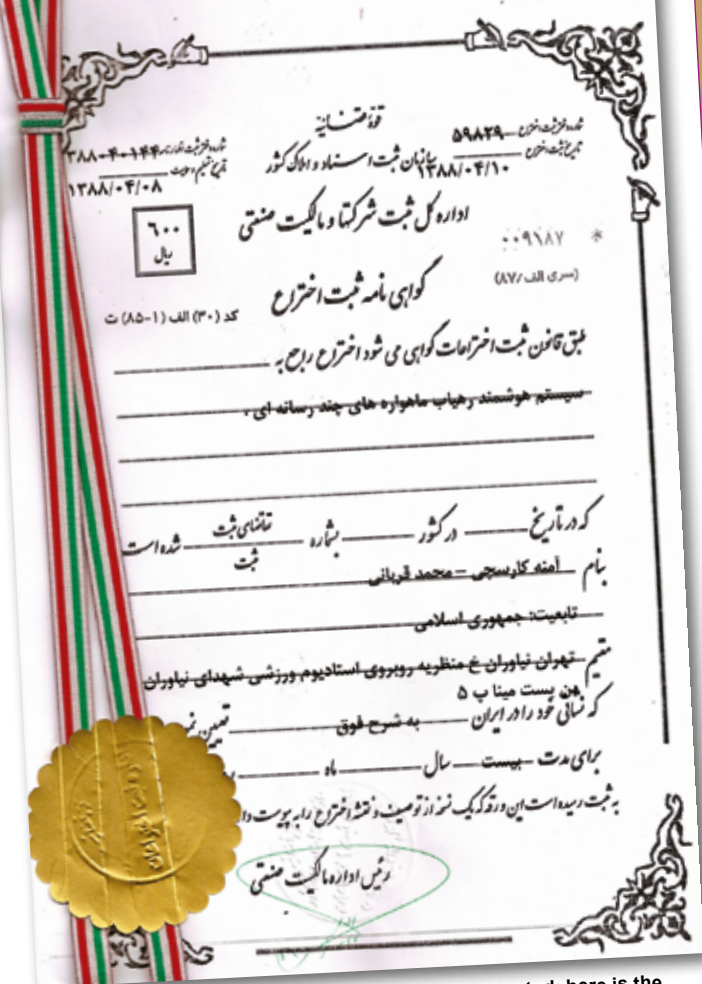 قوه قضائیه
سازمان ثبت اسناد و املاک کشور
شماره دفتر ثبت اختراع ۵۹۸۲۹
تاریخ ثبت اختراع ۱۳۸۸/۰۴/۱۰
شماره دفتر ثبت اظهارنامه ۳۸۸۰۴۰۱۴۴
تاریخ تسلیم
۱۳۸۸/۰۴/۰۸
اداره کل ثبت شرکتها و مالکیت صنعتی
۶۰۰
ریال
* ۰۰۹۱۸۷
(سری الف/۸۷)
گواهی نامه ثبت اختراع
کد (۳۰) الف (۱-۸۵) ت
طبق قانون ثبت اختراعات گواهی می شود اختراع راجع به
سیستم هوشمند رهیاب ماهواره های چند رسانه ای .
که در تاریخ در کشور بشماره تقاضای ثبت شده است
ثبت
بنام آمنه کارسچی – محمد قربانی
تابعیت: جمهوری اسلامی
مقیم تهران نیاوران خ منظریه روبروی استادیوم ورزشی شهدای نیاوران
بن بست مینا پ ۵
که نشانی خود را در ایران به شرح فوق
برای مدت بیست سال ماه
به ثبت رسیده است این ورقه که یک نسخه از توصیف و نقشه اختراع را به پیوست
رئیس اداره مالکیت صنعتی
here is the